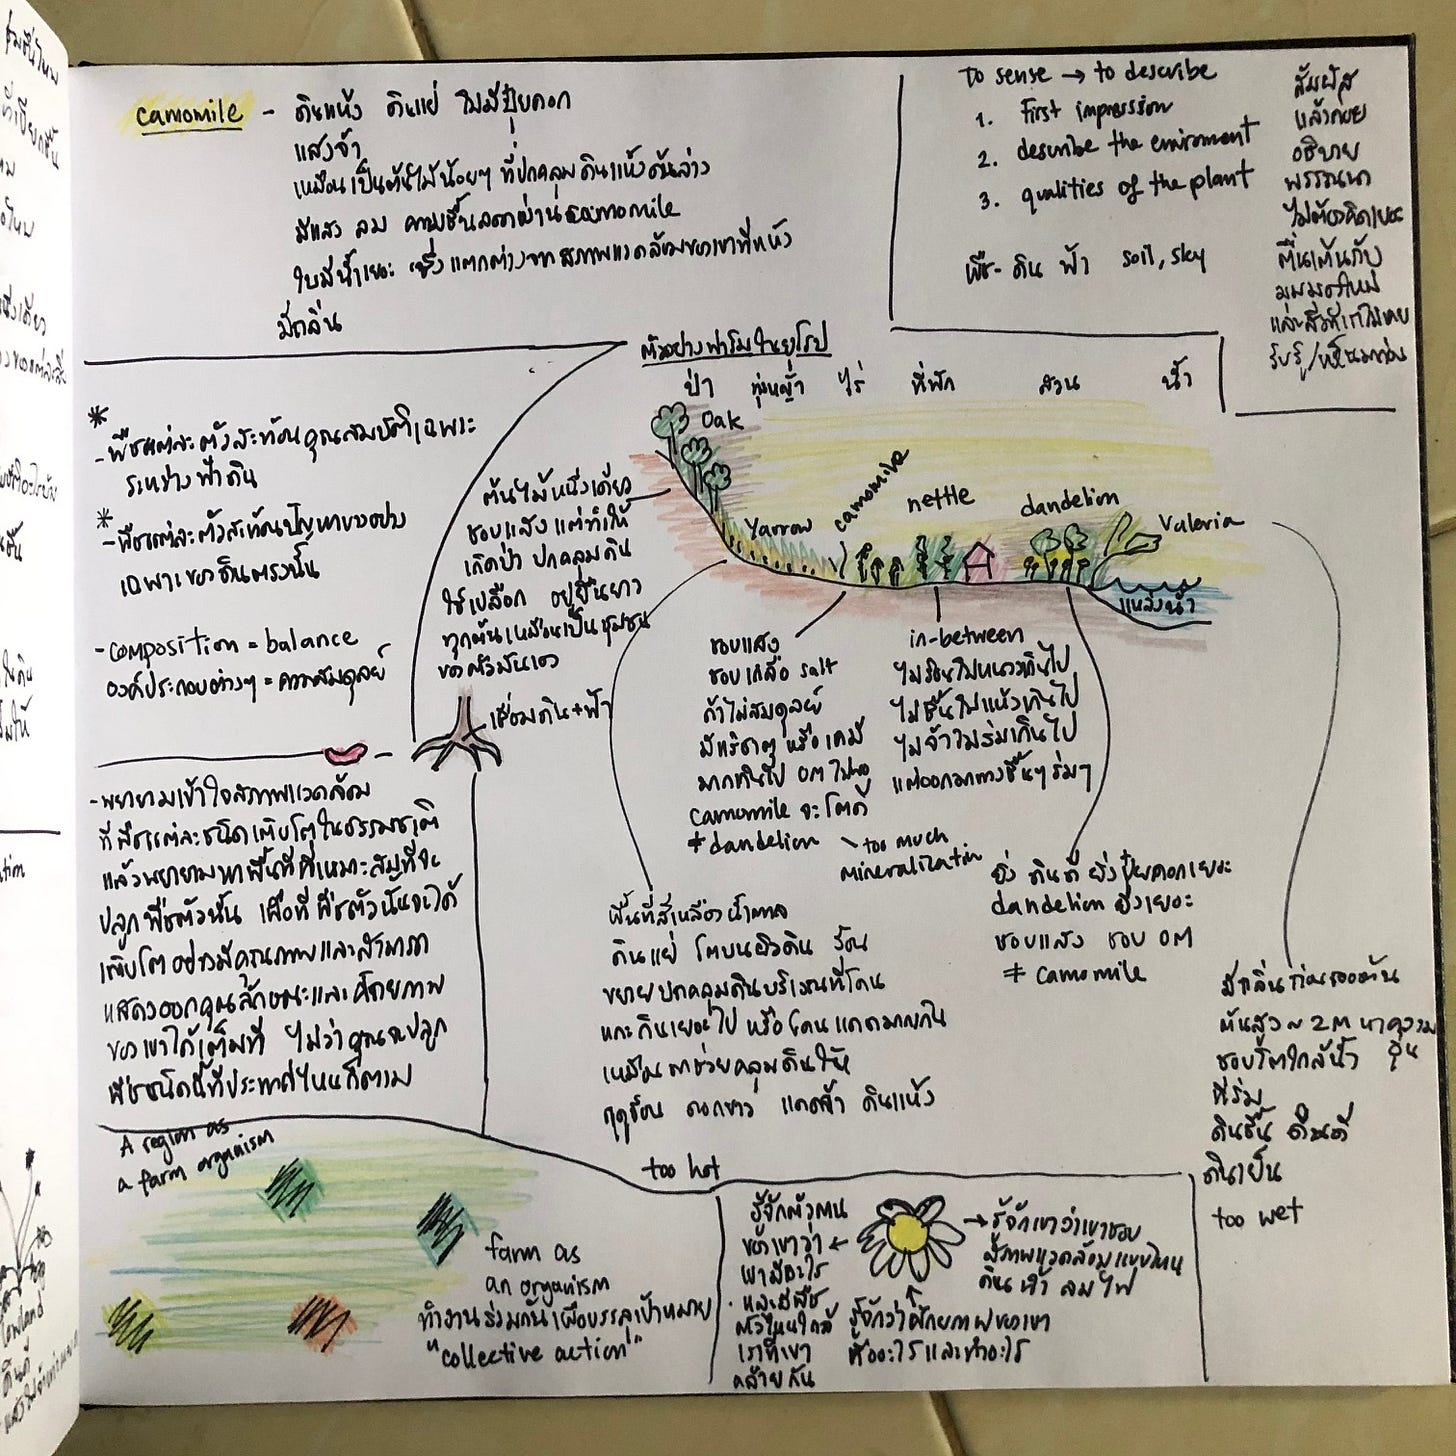 camomile - ดินแห้ง ดินแย่ ไม่มีปุ๋ยคอก
แสงจ้า
เหมือนเป็นต้นไม้น้อยๆ ที่ปกคลุมดินแห้งด้านล่าง
มีแสง ลม ความชื้นลอดผ่าน camomile
ใบมีน้ำเยอะ ซึ่งแตกต่างจากสภาพแวดล้อมของเขาที่แห้ง
มีกลิ่น
To sense → to describe
1. first impression
2. describe the enviroment
3. qualities of the plant
พืช - ดิน ฟ้า soil, sky
สัมผัส
แล้วค่อย
อธิบาย
พรรณนา
ไม่ต้องคิดเยอะ
ตื่นเต้นกับ
มุมมองใหม่
และสิ่งที่เราไม่เคย
รับรู้/เห็นมาก่อน
* - พืชแต่ละตัวสะท้อนคุณสมบัติเฉพาะ
ระหว่างฟ้าดิน
* - พืชแต่ละตัวสะท้อนปัญหาบางอย่าง
เฉพาะของดินตรงนั้น
- composition = balance
องค์ประกอบต่างๆ = ความสมดุลย์
ตัวอย่างฟาร์มในยุโรป
ป่า ทุ่งหญ้า ไร่ ที่พัก สวน น้ำ
Oak
Yarrow
camomile
nettle
dandelion
Valeria
แหล่งน้ำ
ต้นไม้หนึ่งเดียว
ชอบแสง แต่ทำให้
เกิดป่า ปกคลุมดิน
ใช้เปลือก อยู่ยืนยาว
ทุกต้นเหมือนเป็นชุมชน
ของตัวมันเอง
เชื่อมดิน+ฟ้า
ชอบแสง
ชอบเกลือ salt
ถ้าไม่สมดุลย์
มีแร่ธาตุ หรือเคมี
มากเกินไป OM ไม่พอ
camomile จะโตดี
≠ dandelion
too much
mineralization
in-between
ไม่ร้อนไม่หนาวเกินไป
ไม่ชื้นไม่แห้งเกินไป
ไม่จ้าไม่ร่มเกินไป
แต่ออกมาทางชื้นๆ ร่มๆ
ยิ่งดินดี ยิ่งปุ๋ยคอกเยอะ
dandelion ยิ่งเยอะ
ชอบแสง ชอบ OM
≠ camomile
พื้นที่สีเหลืองน้ำตาล
ดินแย่ โตบนผิวดิน ร้อน
ขยายปกคลุมดินบริเวณที่โดน
แกะกินเยอะไป หรือโดนแดดมากเกิน
เหมือนมาช่วยคลุมดินให้
ฤดูร้อน ดอกขาว แดดจ้า ดินแห้ง
too hot
มีกลิ่น
ต้นสูง ~ 2m
ชอบโตใกล้น้ำ
ที่ร่ม
ดินชื้น ดินดี
ดินเย็น
too wet
- พยายามเข้าใจสภาพแวดล้อม
ที่พืชแต่ละชนิดเติบโตในธรรมชาติ
แล้วพยายามหาพื้นที่ที่เหมาะสมที่จะ
ปลูกพืชตัวนั้น เพื่อที่พืชตัวนั้นจะได้
เติบโตอย่างมีคุณภาพและสามารถ
แสดงออกคุณลักษณะและศักยภาพ
ของเขาได้เต็มที่ ไม่ว่าคุณจะปลูก
พืชชนิดนี้ที่ประเทศไหนก็ตาม
A region as
a farm organism
farm as
an organism
ทำงานร่วมกันเพื่อบรรลุเป้าหมาย
"collective action"
รู้จักตัวตน
ของเขาว่า
เขามีอะไร
และมีพืช
ตัวไหนใกล้
เราที่เขา
คล้ายกัน
→ รู้จักเขาว่าเขาชอบ
สภาพแวดล้อมแบบไหน
ดิน น้ำ ลม ไฟ
รู้จักว่าศักยภาพของเขา
คืออะไรและทำอะไร